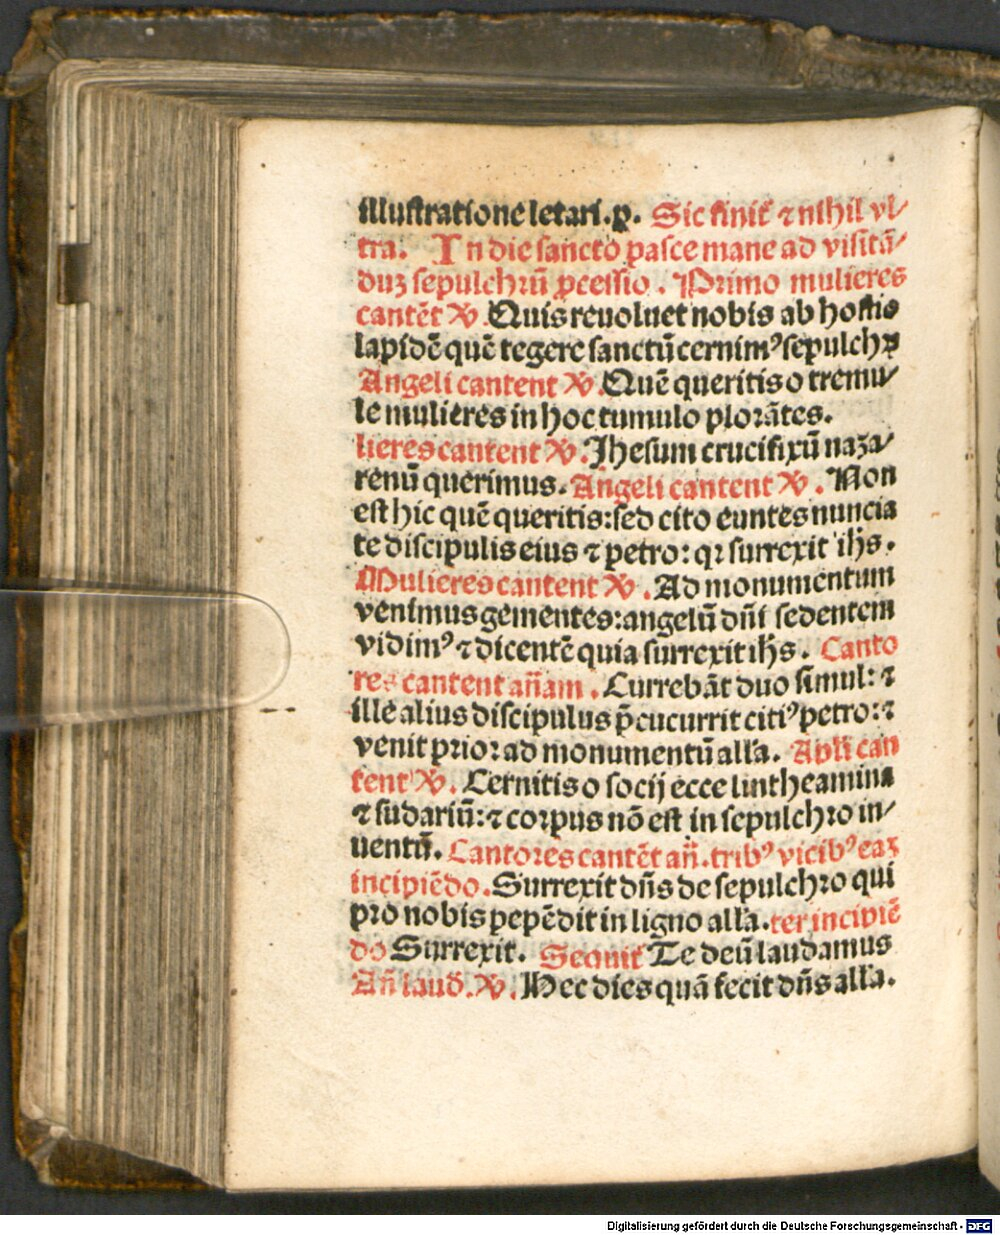 illustratione letari.p. Sic finit᷑ ⁊ nihil vl⸗
tra. In die sancto pasce mane ad visitā⸗
duꝫ sepulchrū ꝓcessio. Primo mulieres
cantēt ℣. Quis reuoluet nobis ab hostio
lapidē quē tegere sanctū cernimꝰ sepulchꝝ
Angeli cantent ℣. Quē queritis o tremu⸗
le mulieres in hoc tumulo plorātes.
lieres cantent ℣. Jhesum crucifixū naza⸗
renū querimus. Angeli cantent ℣. Non
est hic quē queritis: sed cito euntes nuncia
te discipulis eius ⁊ petro: qꝛ surrexit ihs.
Mulieres cantent ℣. Ad monumentum
venimus gementes: angelū dn̄i sedentem
vidimꝰ ⁊ dicentē quia surrexit ihs. Canto
res cantent an̄am. Currebāt duo simul: ⁊
ille alius discipulus p̄cucurrit citiꝰ petro: ⁊
venit prior ad monumentū alla. Apli can
tent ℣. Cernitis o socij ecce lintheamina
⁊ sudariū: ⁊ corpus nō est in sepulchro in⸗
uentū. Cantores cantēt an̄. tribꝰ vicibꝰ eaꝫ
incipiēdo. Surrexit dn̄s de sepulchro qui
pro nobis pepēdit in ligno alla. ter incipiē
do Surrexit. Sequit᷑ Te deū laudamus
An̄ laud. ℣. Hec dies quā fecit dn̄s alla.
Digitalisierung gefördert durch die Deutsche Forschungsgemeinschaft - DFG